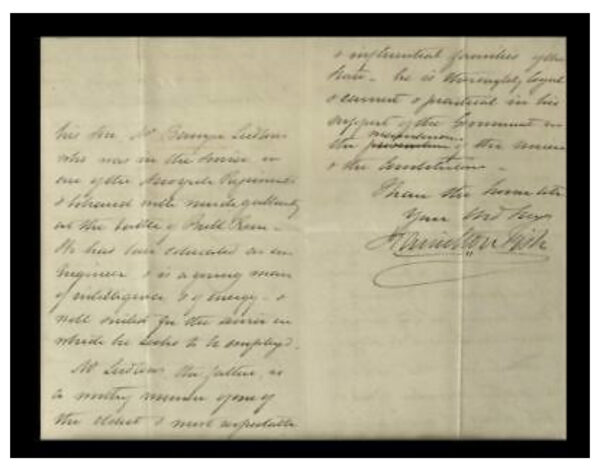 his son Mr Ludlow
who was in the service in
one of the Regiments
& behaved with much gallantry
at the battle of Bull Run -
He has been educated as an
Engineer & is a young man
of intelligence & of energy - &
well suited for the service in
which he seeks to be employed.
Mr Ludlow the father, is
a worthy member of one of
the oldest & most respectable
& influential families of the
State - he is thoroughly loyal
& earnest & practical in his
support of the Government in
the of the union
& the Constitution -
I have the honor to be
Your
Hamilton Fish